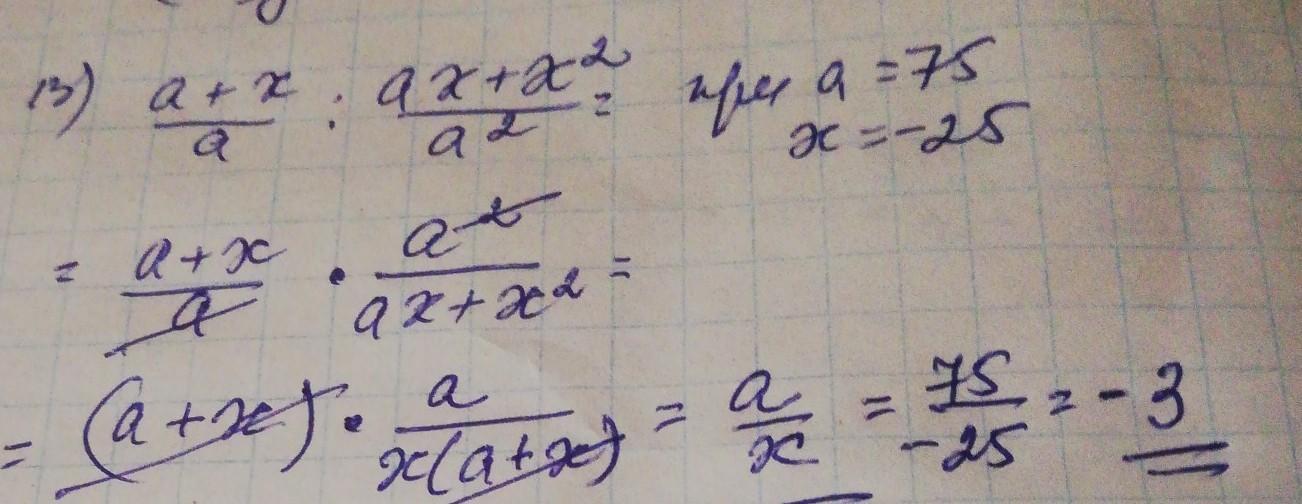 13) (a+x)/a : (ax+x²)/a² = при a = 75
x = -25
= (a+x)/a · a²/(ax+x²) =
= (a+x) · a/(x(a+x)) = a/x = 75/-25 = -3